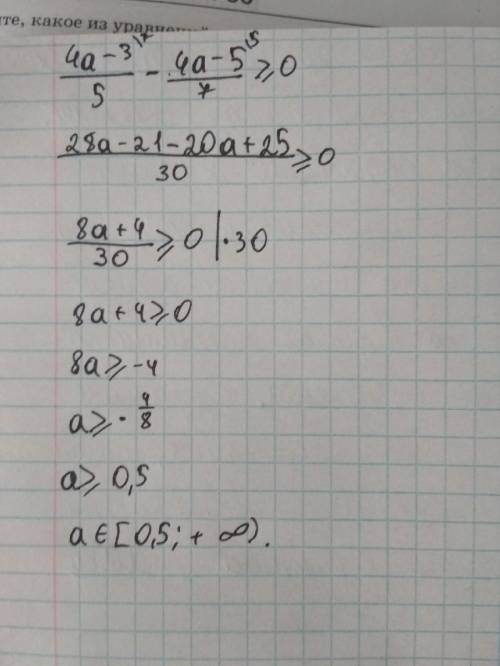 те, какое из
(4a-3)/5 |7 - (4a-5)/7 |5 ≥ 0
(28a-21-20a+25)/30 ≥ 0
(8a+4)/30 ≥ 0 |·30
8a+4≥0
8a≥-4
a≥-4/8
a≥ 0,5
a∈[0,5;+∞).